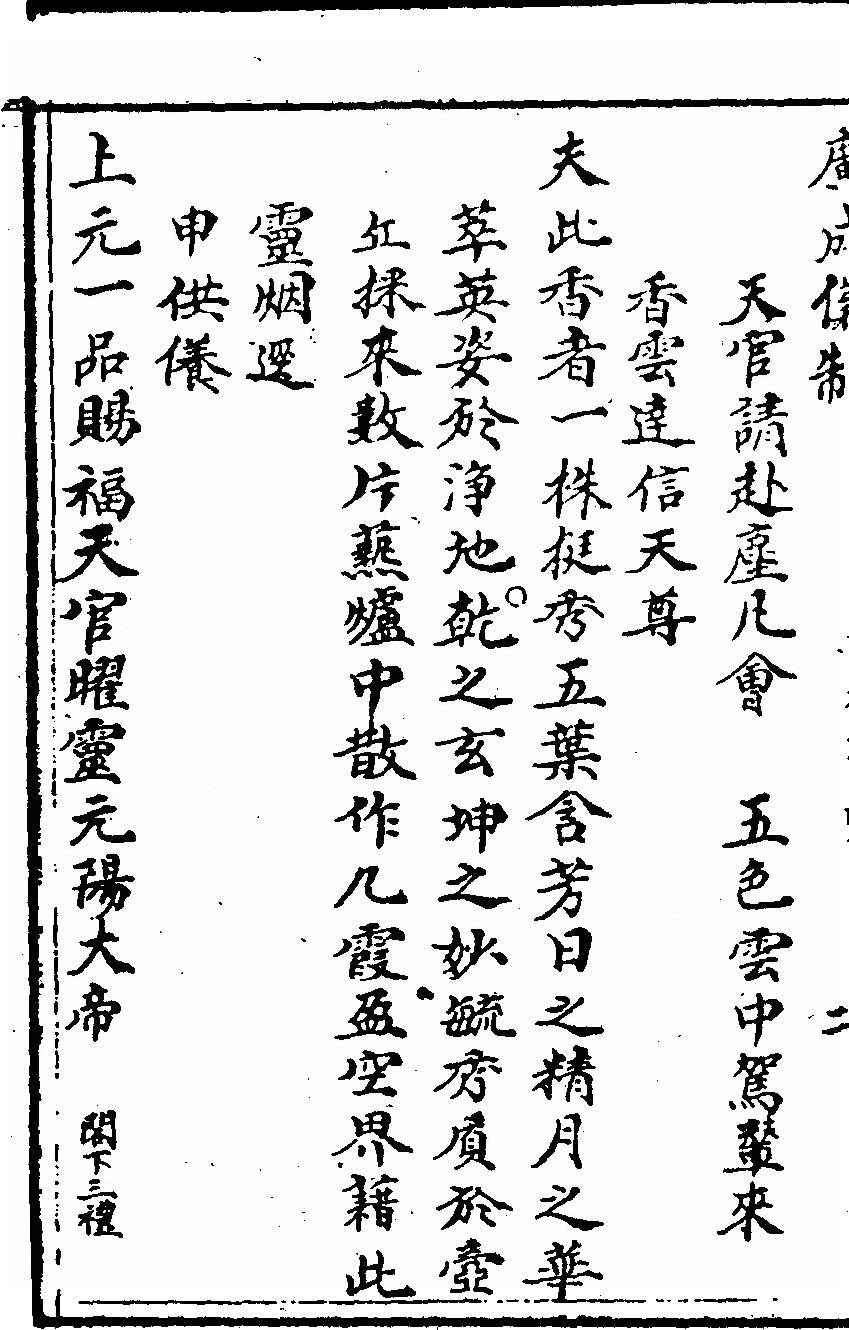 廣成儀制 二
天官請赴塵凡會 五色雲中駕輦來
香雲達信天尊
夫此香者一株挺秀五葉含芳日之精月之華
萃英姿於淨地乾之玄坤之妙毓秀質於壺
江採來數片爇爐中散作几霞盈空界藉此
靈烟逕
申供儀
上元一品賜福天官曜靈元陽大帝 閣下三禮